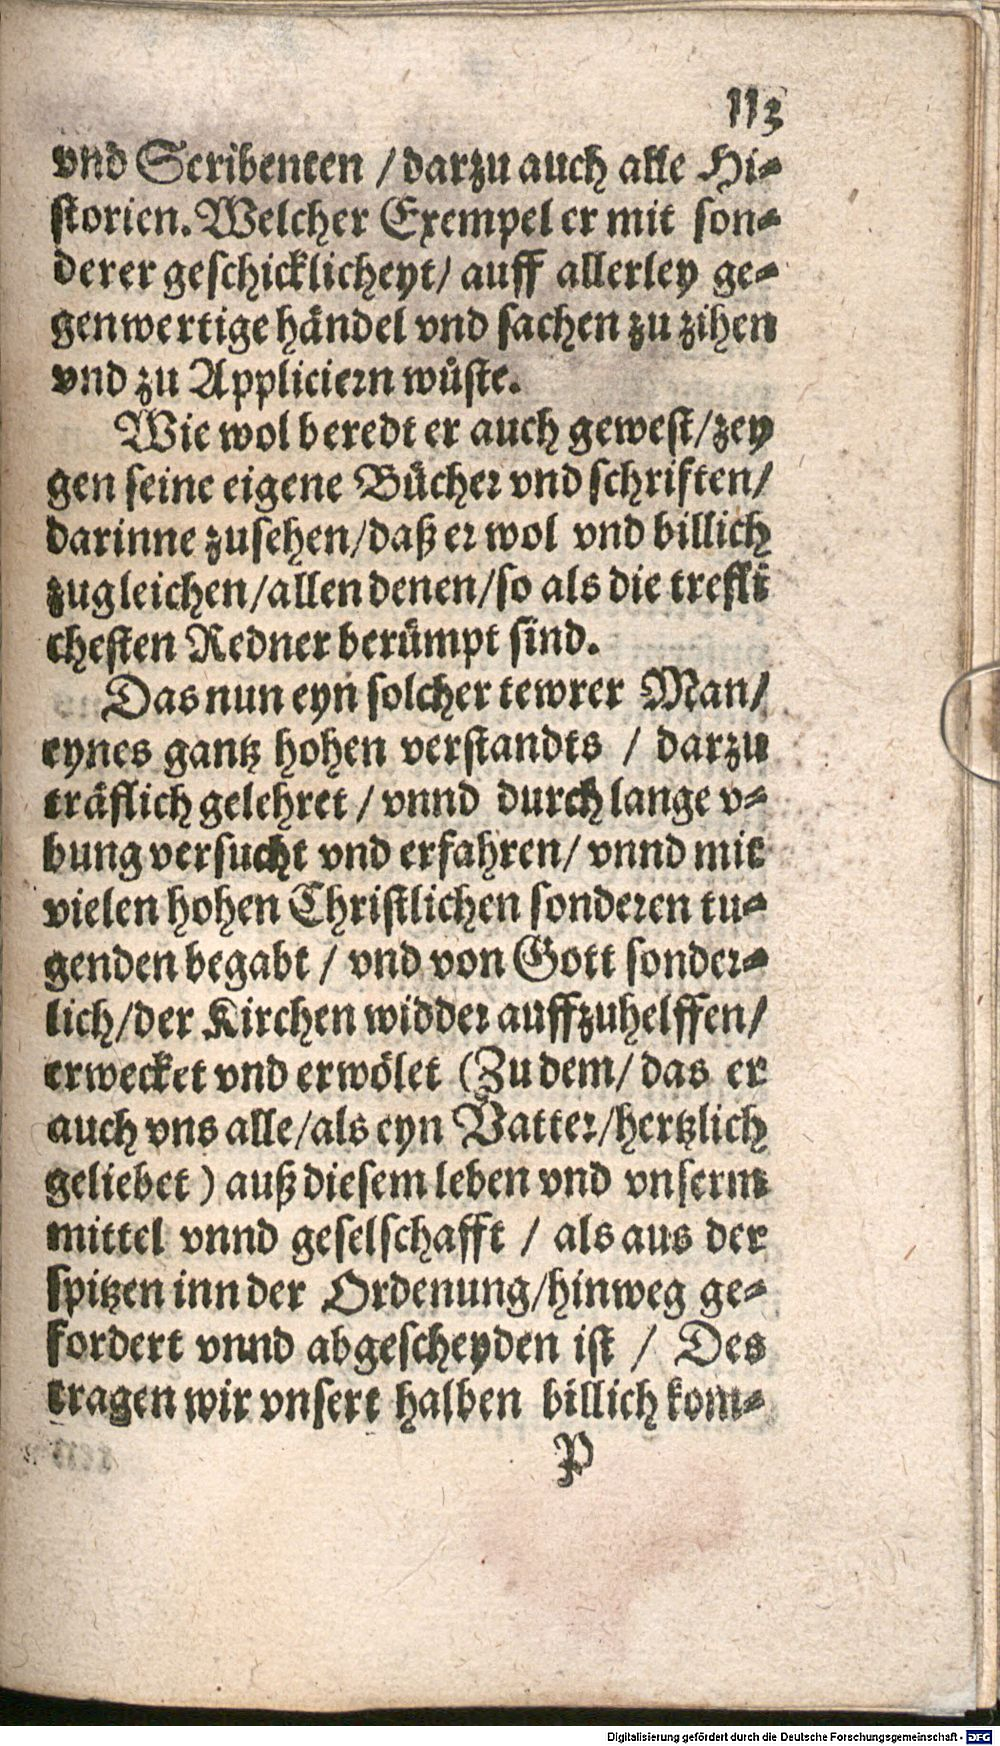 113
vnd Scribenten / darzu auch alle Hi-
storien. Welcher Exempel er mit son-
derer geschicklicheyt / auff allerley ge-
genwertige händel vnd sachen zu zihen
vnd zu Appliciern wůste.
Wie wol beredt er auch gewest / zey
gen seine eigene Bücher vnd schriften /
darinne zusehen / daß er wol vnd billich
zugleichen / allen denen / so als die trefli
chesten Redner berümpt sind.
Das nun eyn solcher tewrer Man /
eynes gantz hohen verstandts / darzu
träflich gelehret / vnnd durch lange v-
bung versucht vnd erfahren / vnnd mit
vielen hohen Christlichen sonderen tu-
genden begabt / vnd von Gott sonder-
lich / der Kirchen widder auffzuhelffen /
erwecket vnd erwölet (Zu dem / das er
auch vns alle / als eyn Vatter / hertzlich
geliebet ) auß diesem leben vnd vnserm
mittel vnnd geselschafft / als aus der
spitzen inn der Ordenung / hinweg ge-
fordert vnnd abgescheyden ist / Des
tragen wir vnsert halben billich kom-
P
Digitalisierung gefördert durch die Deutsche Forschungsgemeinschaft - DFG